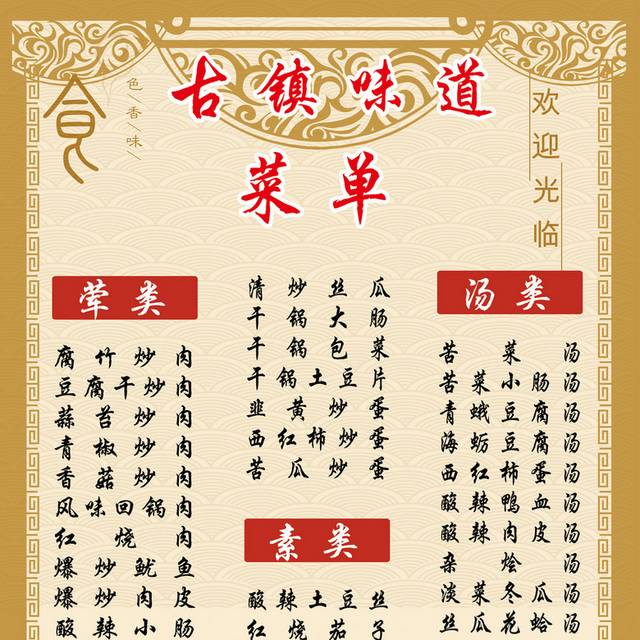 食
色/香/味
古镇味道
菜单
欢迎光临
荤类
腐竹炒肉
豆腐干炒肉
蒜苔炒肉
青椒炒肉
香菇炒肉
风味回锅肉
红烧肉
爆炒鱿鱼
爆炒肉皮
酸辣小肠
清炒丝瓜
干锅大肠
干锅包菜
干锅土豆片
韭黄炒蛋
西红柿炒蛋
苦瓜炒蛋
素类
酸辣土豆丝
红烧茄子
汤类
苦菜汤
苦菜小肠汤
青蛾豆腐汤
海蛎豆腐汤
西红柿蛋汤
酸辣鸭血汤
酸辣肉皮汤
杂烩汤
淡菜冬瓜汤
丝瓜花蛤汤